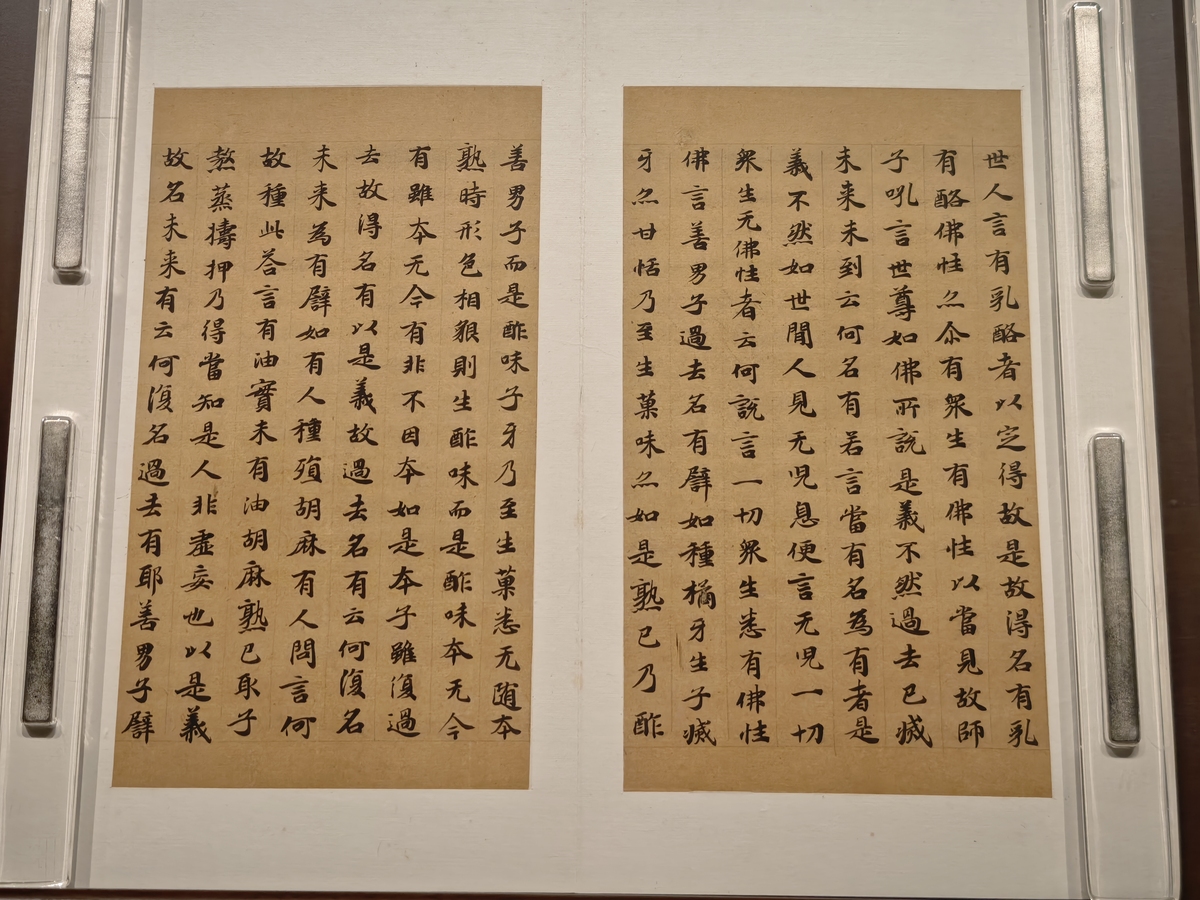 世人言有乳酪者以定得故是故得名有乳
有酪佛性亦尒有衆生有佛性以當見故師
子吼言世尊如佛所說是義不然過去已滅
未来未到云何名有若言當有名為有者是
義不然如世間人見无兒息便言无兒一切
衆生无佛性者云何說言一切衆生悉有佛性
佛言善男子過去名有譬如種橘牙生子滅
牙亦甘恬乃至生菓味亦如是熟已乃酢
善男子而是酢味子牙乃至生菓悉无随本
熟時形色相貌則生酢味而是酢味本无今
有雖本无今有非不因本如是本子雖復過
去故得名有以是義故過去名有云何復名
未来為有譬如有人種殖胡麻有人問言何
故種此荅言有油實未有油胡麻熟已取子
熬蒸擣押乃得當知是人非虛妄也以是義
故名未来有云何復名過去有耶善男子譬